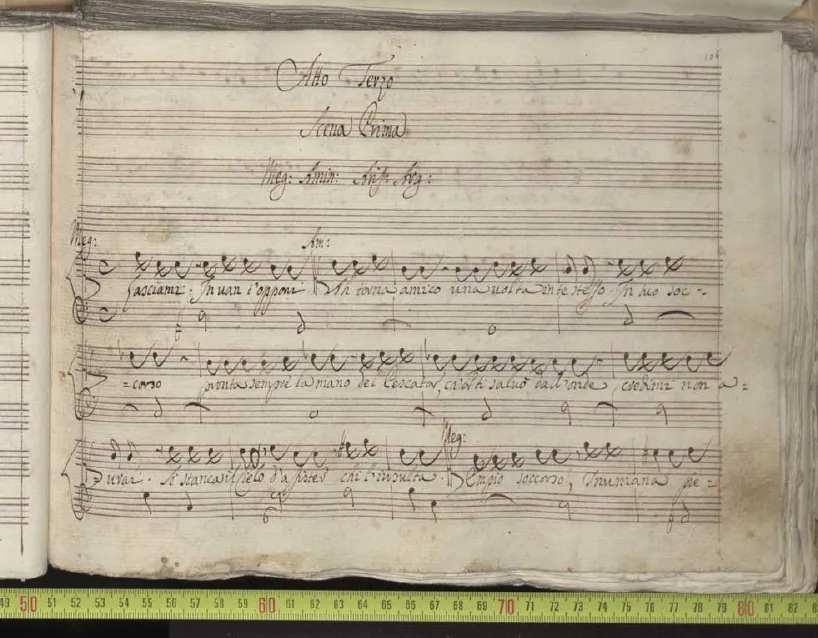 106
Atto Terzo
Scena Prima
Meg: Amin: Arist: Arg:
Meg: Am:
Lasciami. In van t'opponi Ah torna amico una volta in te stesso. In tuo soc-
=corso pronta sempre la mano del Pescator, ch'or ti salvò dall'onde credimi non a=
vrai. Si stanca il Cielo d'assister chi l'insulta. Empio soccorso, Inumana pie=
Meg:
49 50 51 52 53 54 55 56 57 58 59 60 61 62 63 64 65 66 67 68 69 70 71 72 73 74 75 76 77 78 79 80 81 82